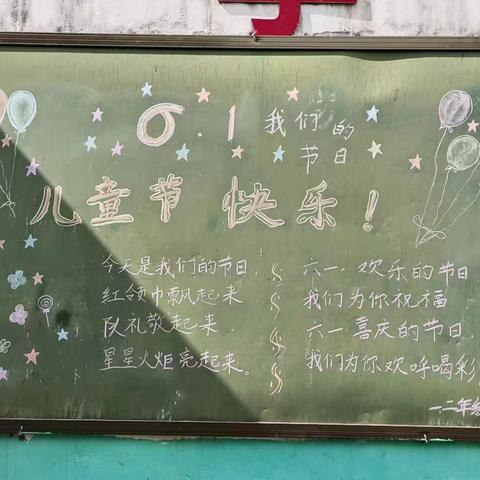 6.1 我们的
节日
儿童节 快乐！
今天是我们的节日，
红领巾飘起来
队礼敬起来
星星火炬亮起来。
六一·欢乐的节日
我们为你祝福
六一·喜庆的节日，
我们为你欢呼喝彩
一.二年级